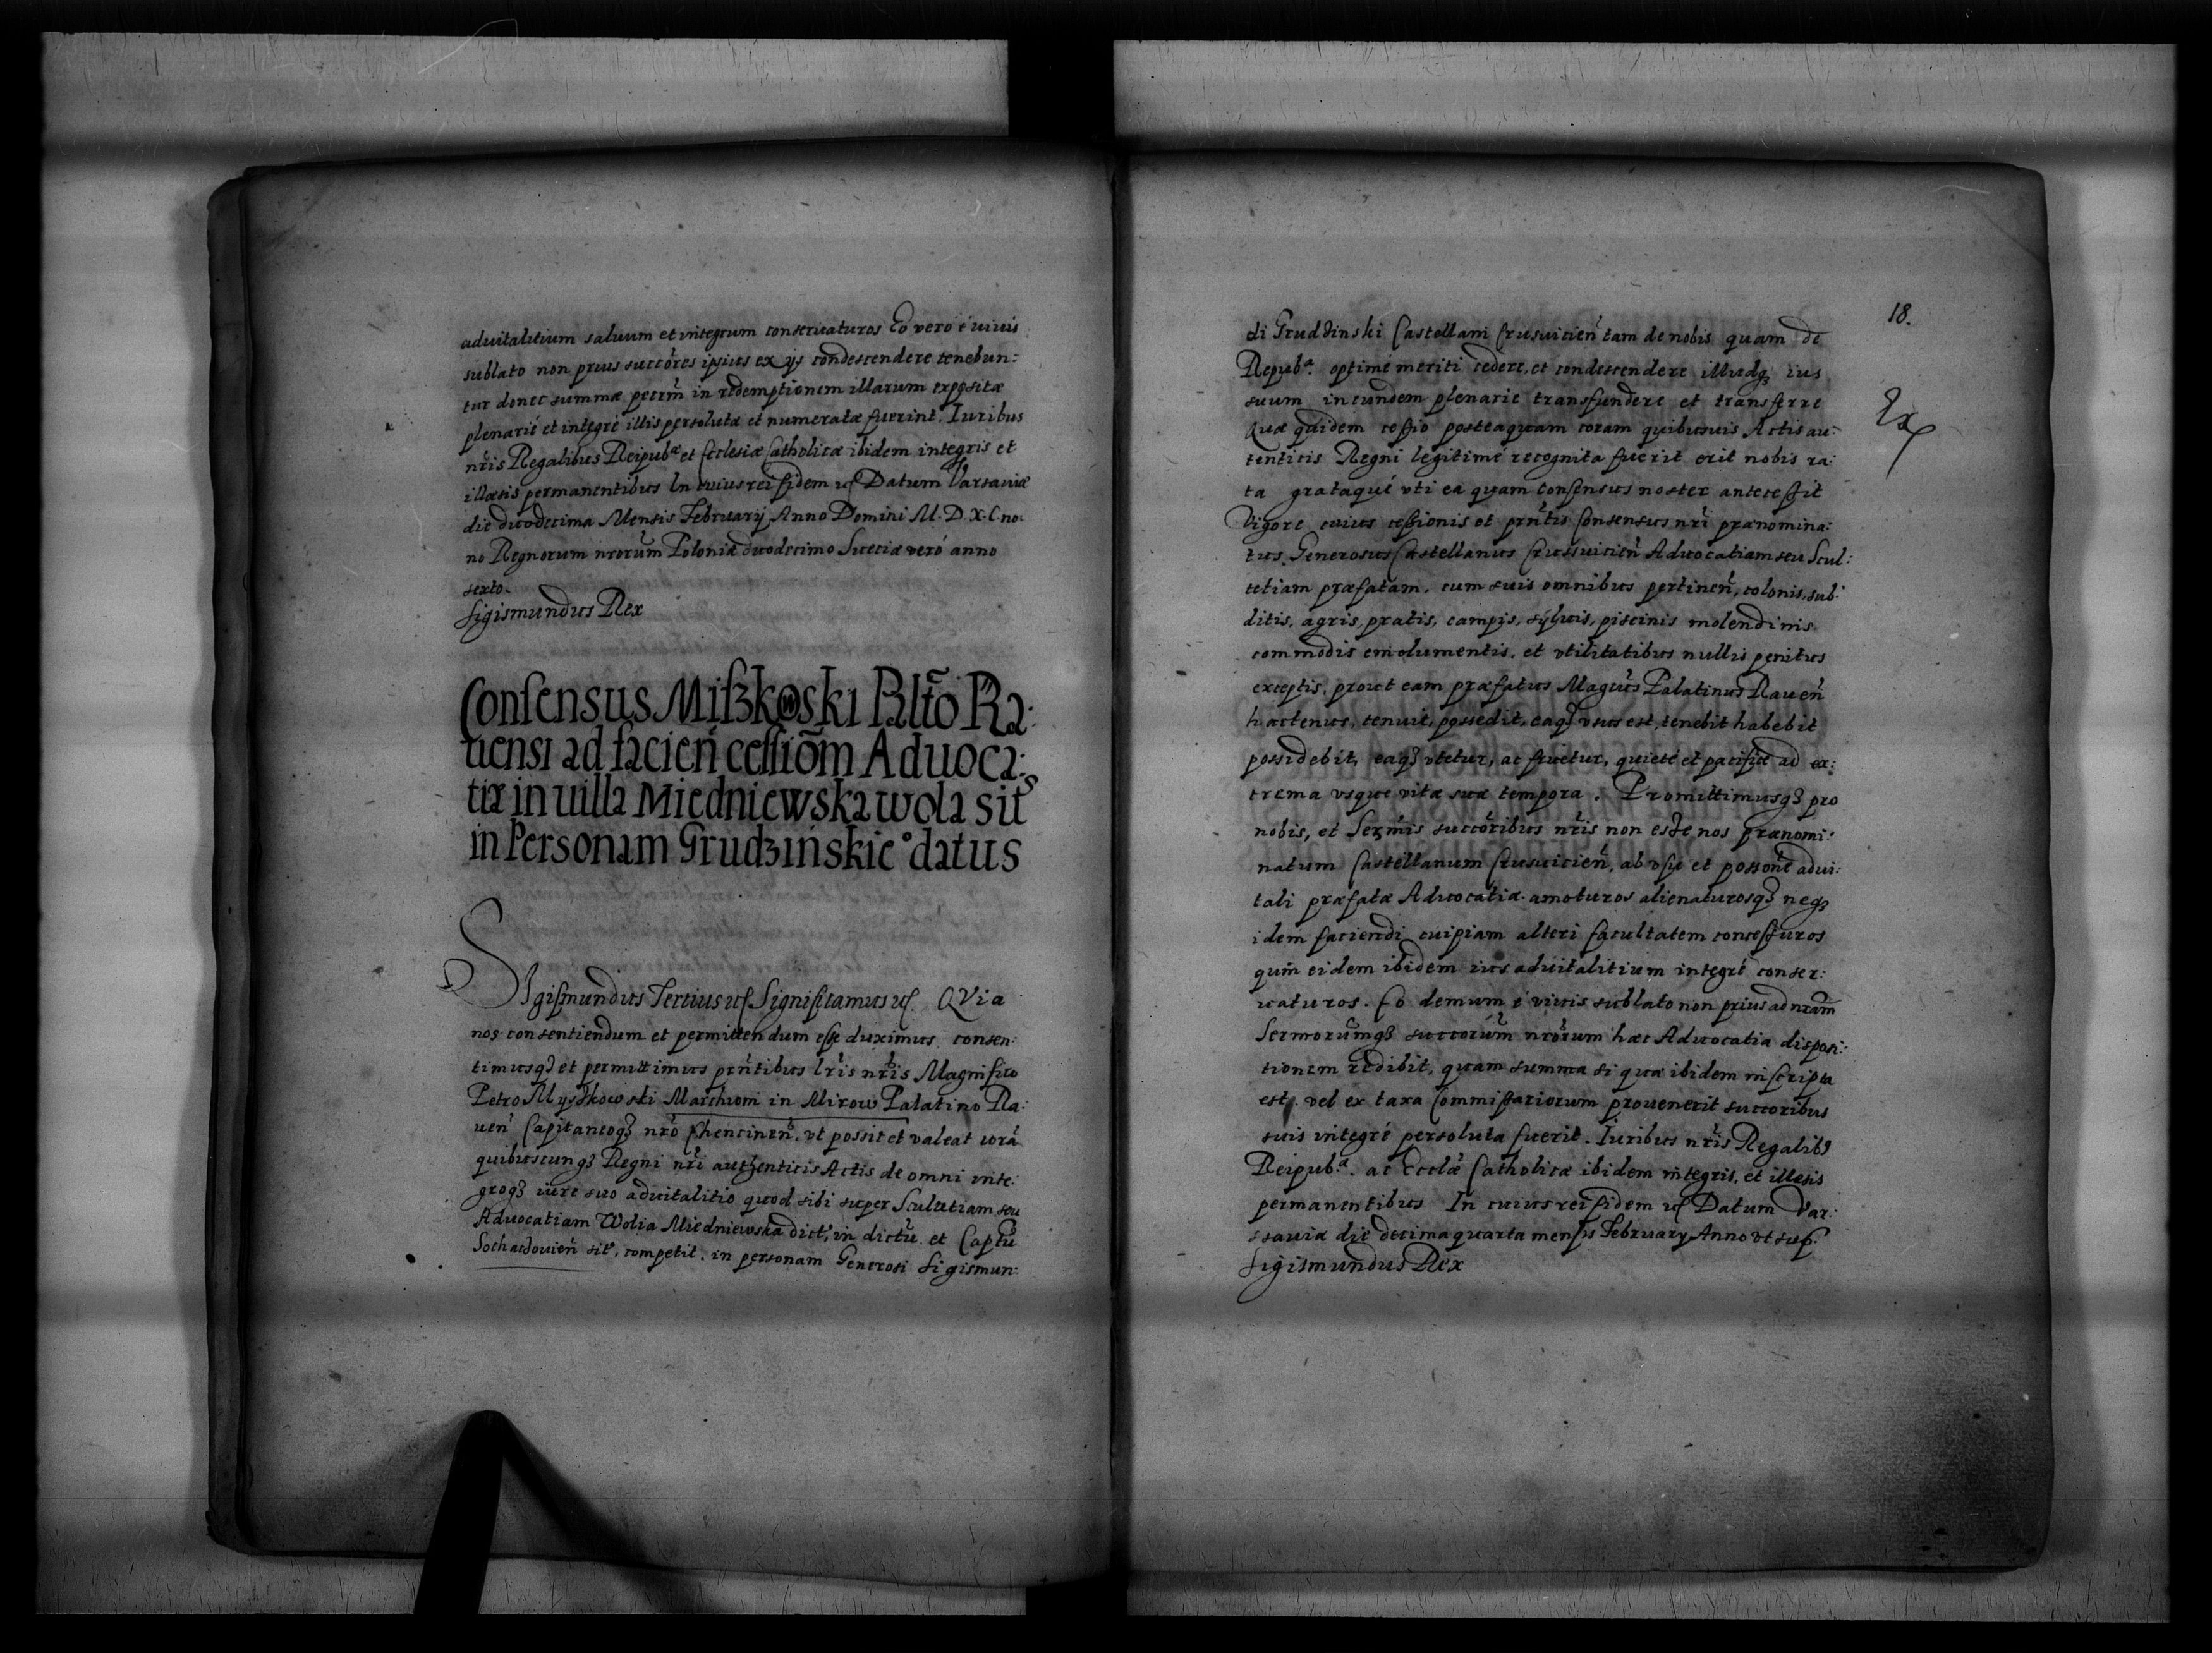 aduitalitium saluum et integrum conseruaturos Eo vero é uiuis
sublato non prius succőres ipsius ex ijs condescendere tenebun:
tur donec summæ pecrm̃ in redemptionem illarum expositæ
plenarié et integré illis persolutæ et numeratæ fuerint. Iuribus
nr̃is Regalibus Reipubᵃᵉ et Ecclesiæ Catholicæ ibidem integris et
illæsis permanentibus In cuius rei fidem ꝛc̃ Datum Varsauiæ
die duodecima Mensis February Anno Domini M.D.X.C. no:
no Regnorum nrorum̃ Poloniæ duodecimo Sueciæ veró anno
sexto.
Sigismundus Rex
Consensus Miszkowski Palt̃o Ra:
uensi ad facien̄ cessiōm Aduoca:
tiæ in uilla Miedniewska wola sits
in Personam Grudzinskie° datus
SIgismundus Tertius ꝛc̃ Significamus ꝛc̃. QVia
nos consentiendum et permittendum esse duximus consen:
timusqꝫ et permittimus prn̄tibus lr̃is nr̃is Magnifico
Petro Myszkowski Marchioni in Mirow Palatino Ra:
uen̄ Capitaneoqꝫ nrõ Chencinen̄. vt possit et valeat corã
quibuscunqꝫ Regni nr̃i authenticis Actis de omni inte:
groqꝫ iure suo aduitalitio quod sibi super Scultetiam seu
Aduocatiam Wolia Miedniewska dict', in dictũ. et Captũ
Sochaczouien̄ sitᵃ, competit. in personam Generosi Sigismun:
18.
di Grudzinski Castellani Crusuicien̄ tam de nobis quam de
Repubᵃ. optimé meriti cedere, et condescendere illudqꝫ ius
suum in eundem plenarié transfundere et transferre
Quæ quidem cessio posteaquam coram quibusuis Actis au:
tenticis Regni legitimé recognita fuerit erit nobis ra:
ta grataqué vti ea quam Consensus noster antecessit
Vigore cuius cessionis et prn̄tis Consensus nr̃i prænomina:
tus Generosus Castellanus Crussuicien̄ Aduocatiam seu Scul:
tetiam præfatam, cum suis omnibus pertinen̄, colonis, sub:
ditis, agris, pratis, campis, syluis, piscinis molendinis
commodis emolumentis, et vtilitatibus nullis penitus
exceptis, prout eam præfatus Magcus Palatinus Rauen̄
hactenus, tenuit, possedit, eaqꝫ vsus est, tenebit habebit
possidebit, eaqꝫ vtetur, ac fruetur, quieté et pacificé ad ex:
trema vsque vitæ suæ tempora. Promittimusqꝫ pro
nobis, et Serm̃is succõribus nr̃is non esse nos prænomi:
natum Castellanum Crusuicien̄, ab vsu et possone adui:
tali præfatæ Aduocatiæ amoturos alienaturosqꝫ neqꝫ
idem faciendi cuipiam alteri facultatem concessuros
quin eidem ibidem ius aduitalitium integré conser:
uaturos. Eo demum é viuis sublato non prius ad nram̃
Sermorum̃qꝫ succorum̃ nrorum̃ hæc Aduocatia disposi:
tionem redibit, quam summa si quæ ibidem inscripta
est, vel ex taxa Commissariorum prouenerit succoribus
suis integré persoluta fuerit. Iuribus nr̃is Regalibꝯ
Reipubᵃᵉ. ac Ecclæ̃ Catholicæ ibidem integris, et illesis
permanentibus In cuius rei fidem ꝛc̃ Datum Var:
ssauiæ die decima quarta mensis February Anno vt sup̃.
Sigismundus Rex